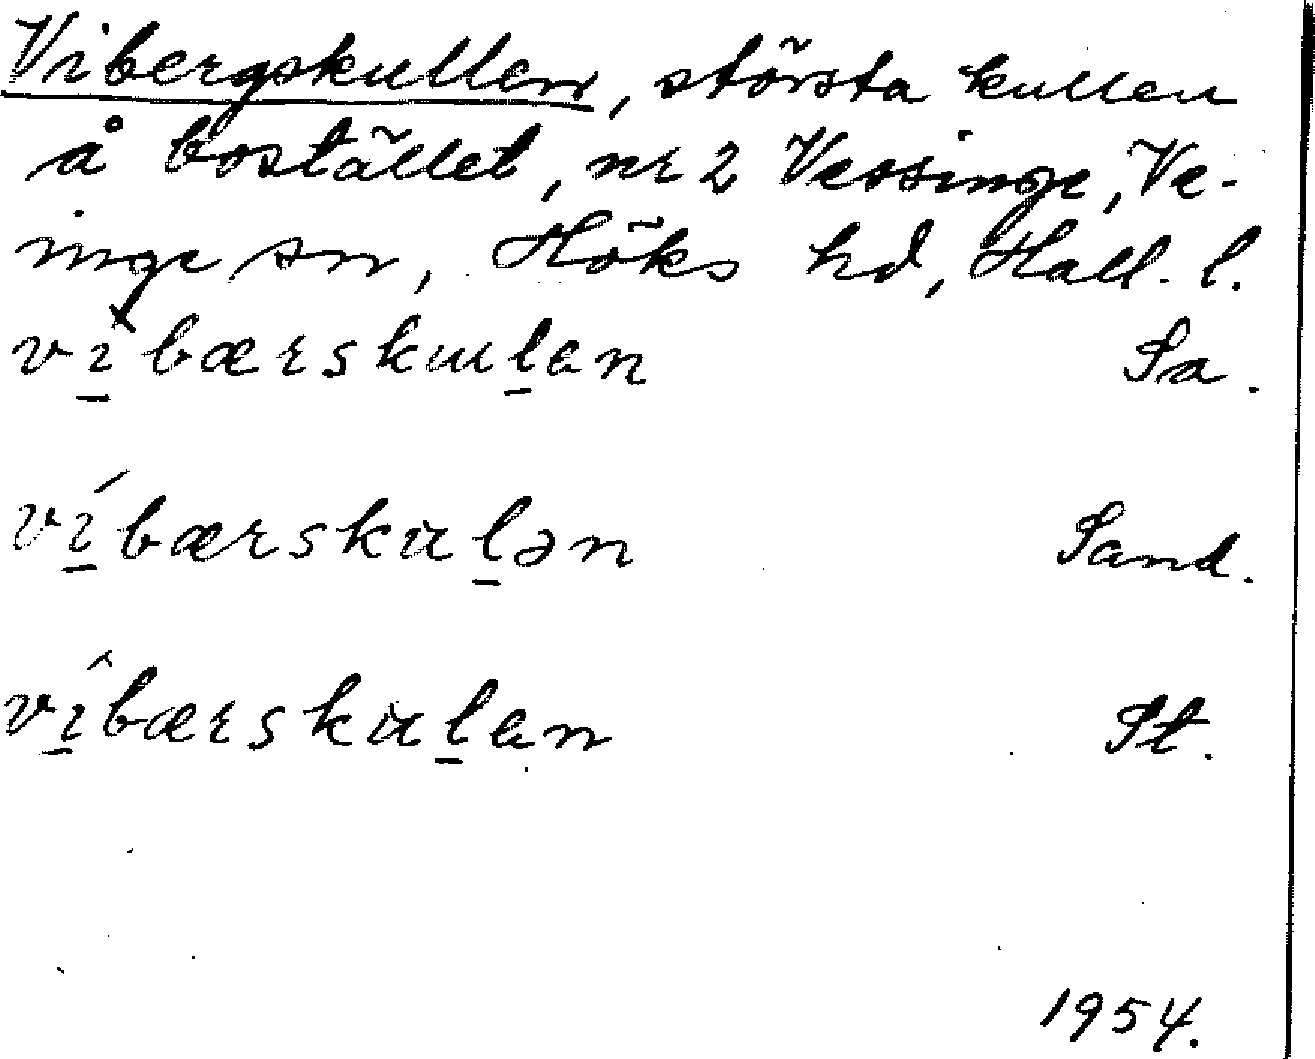 Vibergskullen, största kullen
å bostället, nr 2 Vessinge, Ve-
inge sn, Höks hd, Hall. l.
vi̱̽bærskuḻen Sa.
ví̱bærskuḻən Sand.
vî̱bærskuḻen St.
1954.